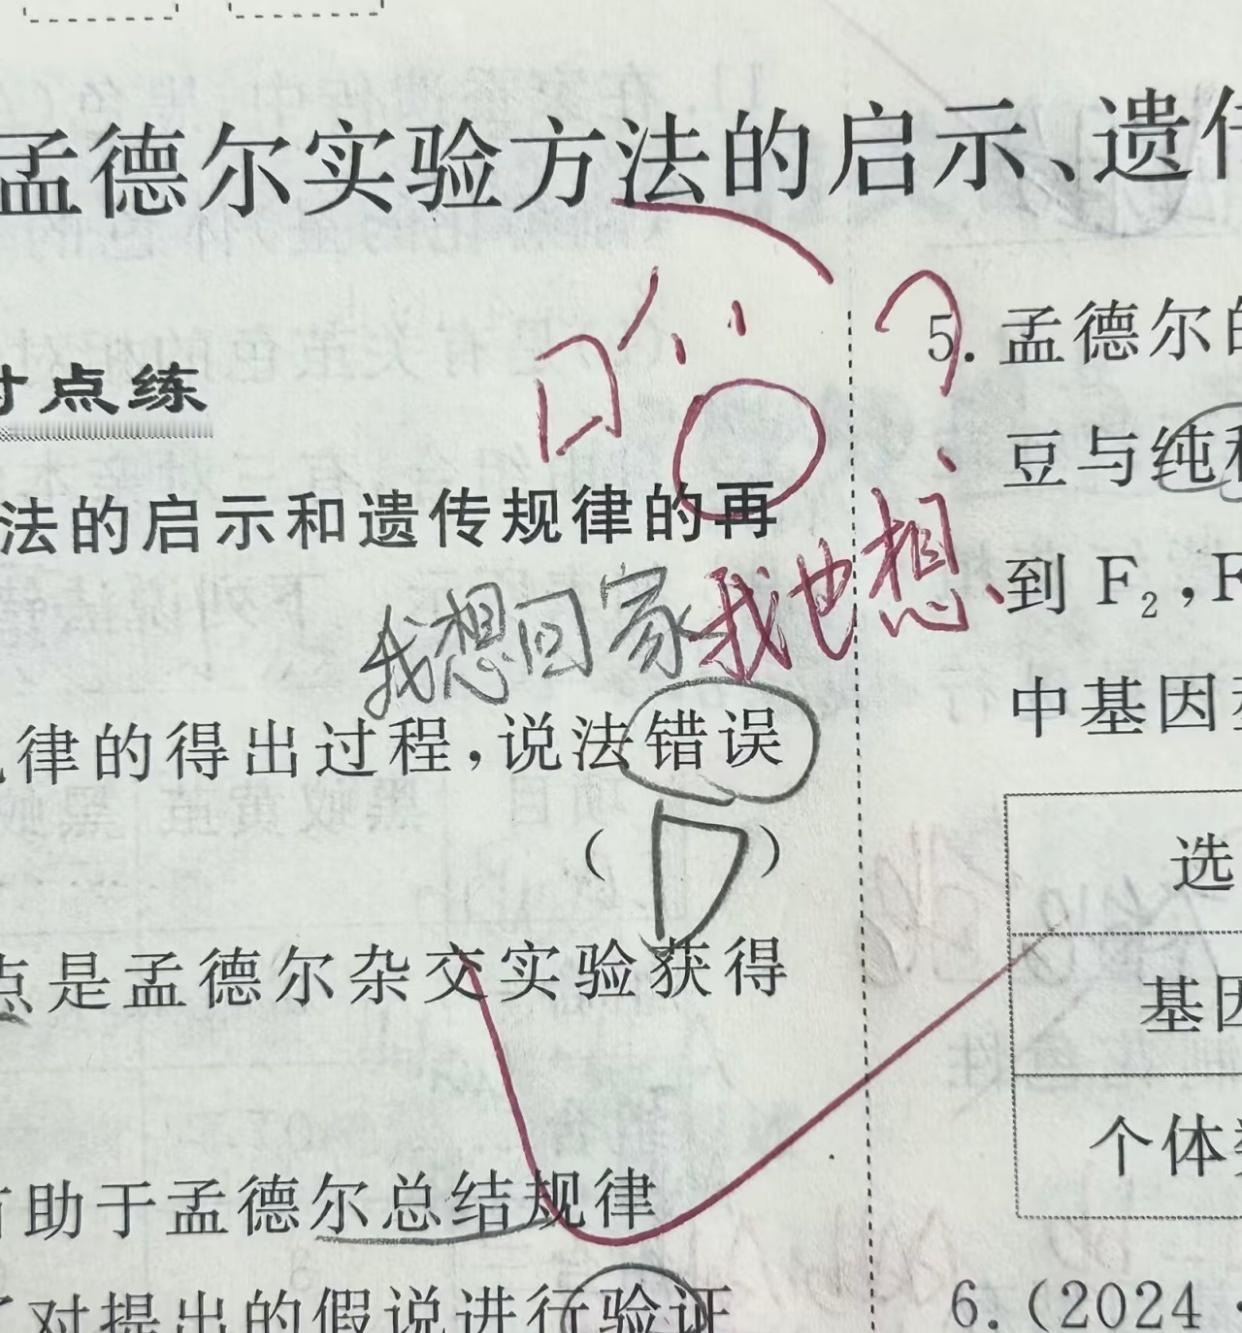 孟德尔实验方法的启示、遗传
对点练
法的启示和遗传规律的再
我想回家 我也想、
律的得出过程,说法错误
( D )
点是孟德尔杂交实验获得
有助于孟德尔总结规律
了对提出的假说进行验证
5. 孟德尔的
豆与纯种
到 F₂,F
中基因型
选
基因
个体数
6. (2024·